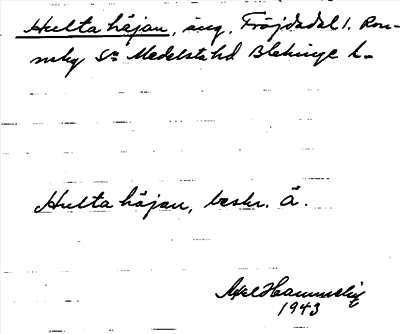 Hulta häjan, äng, Fröjdadal 1. Ron-
neby Sn Medelstahd Blekinge l.
Hulta häjan, beskr. Ä.
Axel
1943